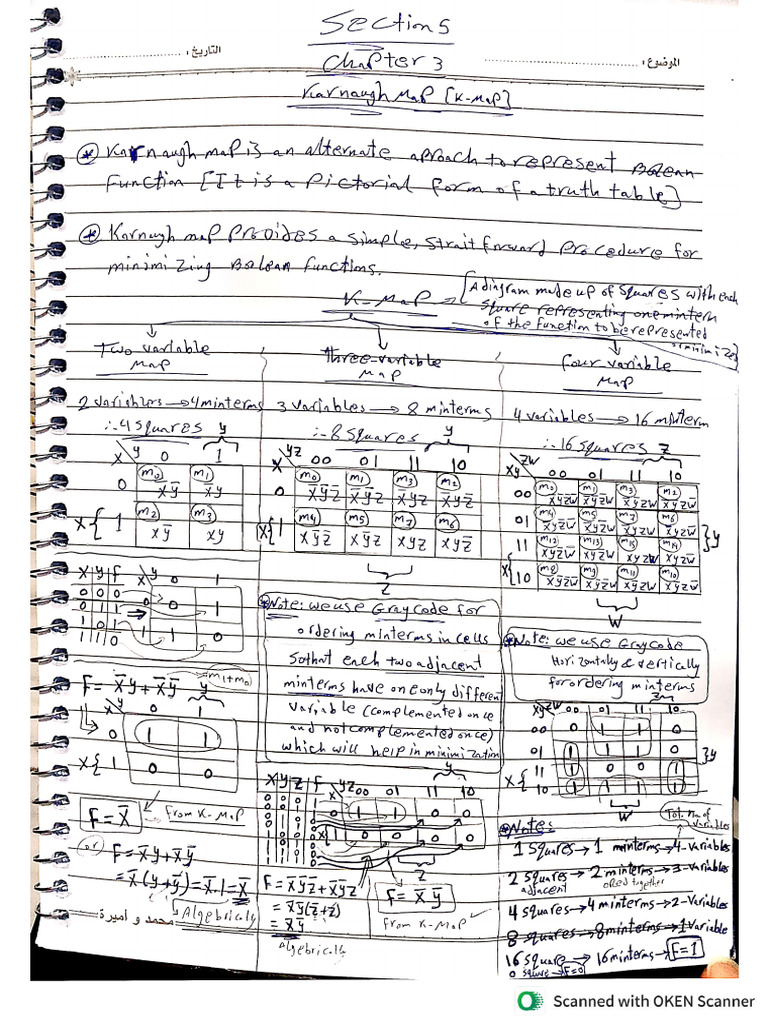 Sections
التاريخ :
الموضوع :
Chapter 3
Karnaugh Map [K-Map]
* Karnaugh map is an alternate aproach to represent Bolean
Function [It is a Pictorial form of a truth table]
* Karnaugh map Provides a simple, strait forward Procedure for
minimizing Bolean Functions.
K-Map = [A diagram made up of squares with each
square representing one minterm
of the Function to be represented
Two variable
Map
2 variables → 4 minterms
∴ 4 squares
y
x y 0 1
0 m0 x̅y̅ m1 x̅y
x{ 1 m2 xy̅ m3 xy
X Y F
0 0 0
0 1 1
1 0 1
1 1 0
x y 0 1
0 0 1
1 1 0
F = x̅y + x̅y̅
m1+m0
y
x y 0 1
0 1 1
x{ 1 0 0
F = x̅
From K-Map
or
F = x̅y + x̅y̅
= x̅(y+y̅) = x̅.1 = x̅
Algebrically
محمد و اميرة
Three-variable
Map
3 variables → 8 minterms
∴ 8 squares
y
x yz 00 01 11 10
0 m0 x̅y̅z̅ m1 x̅y̅z m3 x̅yz m2 x̅yz̅
x{ 1 m4 xy̅z̅ m5 xy̅z m7 xyz m6 xyz̅
z
* Note: we use Gray code for
ordering minterms in cells
so that each two adjacent
minterms have one only different
variable (complemented once
and not complemented once)
which will help in minimization
X Y Z F
y
x yz 00 01 11 10
0 1 1 0 0
1 0 0 0 0
z
F = x̅y̅z̅ + x̅y̅z
= x̅y̅(z̅+z)
= x̅y̅
Algebrically
F = x̅y̅
From K-Map
four variable
Map
4 variables → 16 minterm
∴ 16 squares
z
xy zw 00 01 11 10
00 m0 m1 m3 m2
01 m4 m5 m7 m6
11 m12 m13 m15 m14
x{ 10 m8 m9 m11 m10
}y
w
* Note: we use Gray code
Horizontally & vertically
for ordering minterms
00 01 11 10
00 0 1 1 0
01 1 0 0 1
}y
w
* Notes
Tot. No. of
variables
1 squares → 1 minterms → 4-variables
2 squares → 2 minterms → 3-variables
adjacent ored together
4 squares → 4 minterms → 2-Variables
8 squares → 8 minterms → 1 Variable
16 square → 16 minterms → F=1
0 square → F=0
Scanned with OKEN Scanner